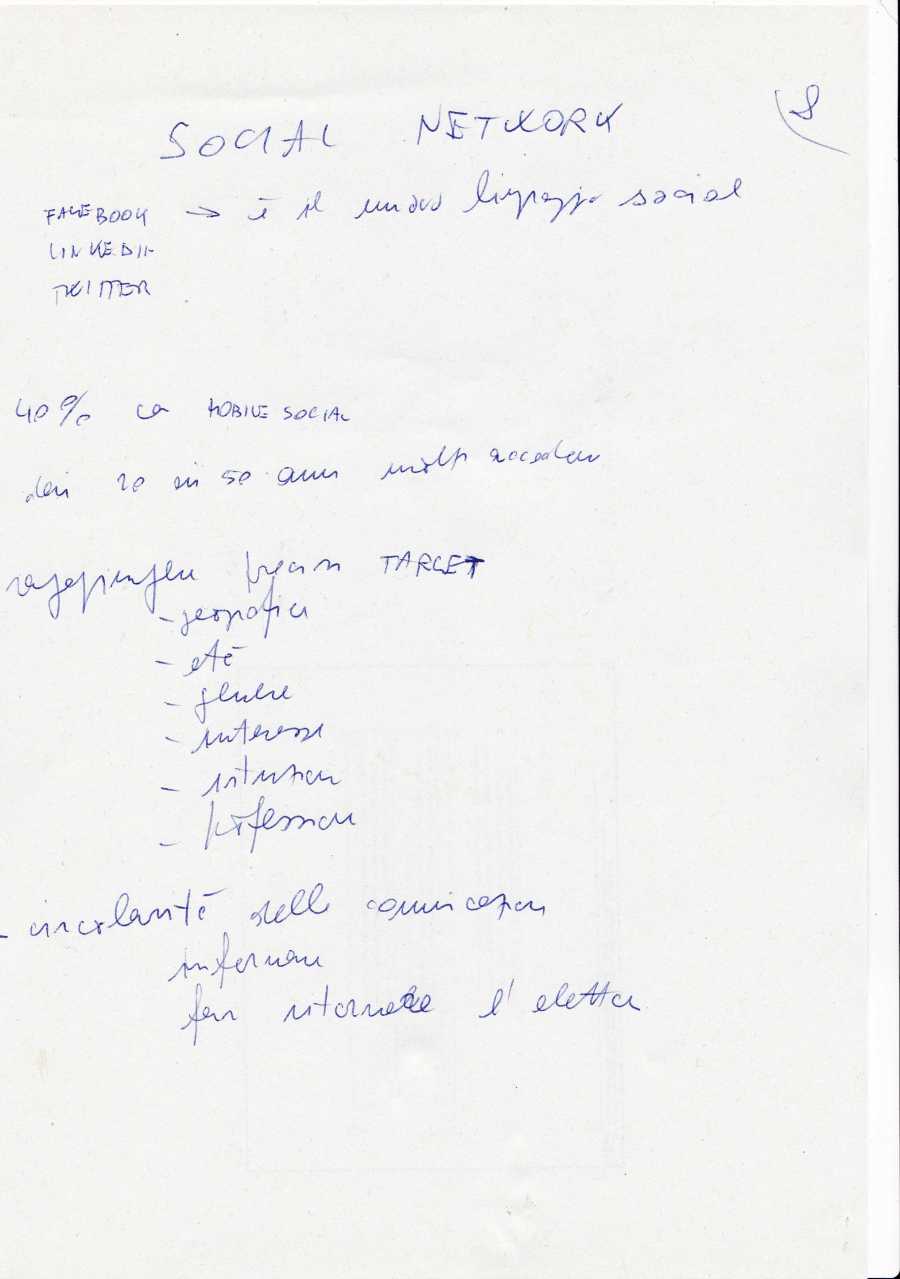 8
SOCIAL NETWORK
FACEBOOK → è il nuovo linguaggio social
LINKEDIN
TWITTER
40% ca MOBILE SOCIAL
20 in 50 anni molto
raggiungere precisi TARGET
- geografici
- età
- genere
- interessi
- istruzione
- professione
- circolarità della comunicazione
informare
far ritornare l'